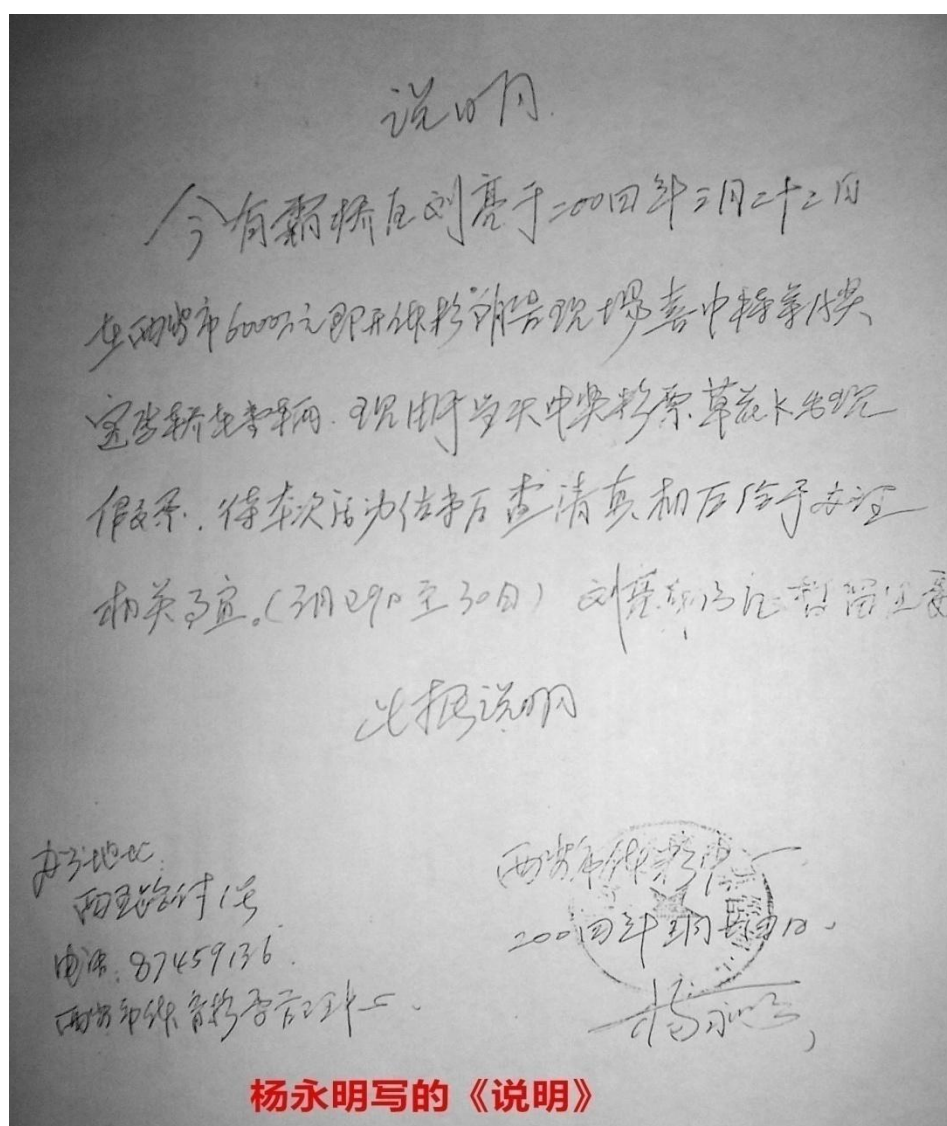 说明
今有霸桥区刘亮于二00四年三月二十三日
在西安市6000万元即开体彩销售现场喜中特等A奖
宝马轿车壹辆.现由于当天中奖彩票草花K出现
假票.待本次活动结束后查清真相后给予办证
相关事宜。(三月29日至30日) 刘亮
此据说明
办事地址:
西五路付1号
电话:87459136.
西安市体育彩票管理中心.
西安市体彩中心
2004年三月
杨永明
杨永明写的《说明》